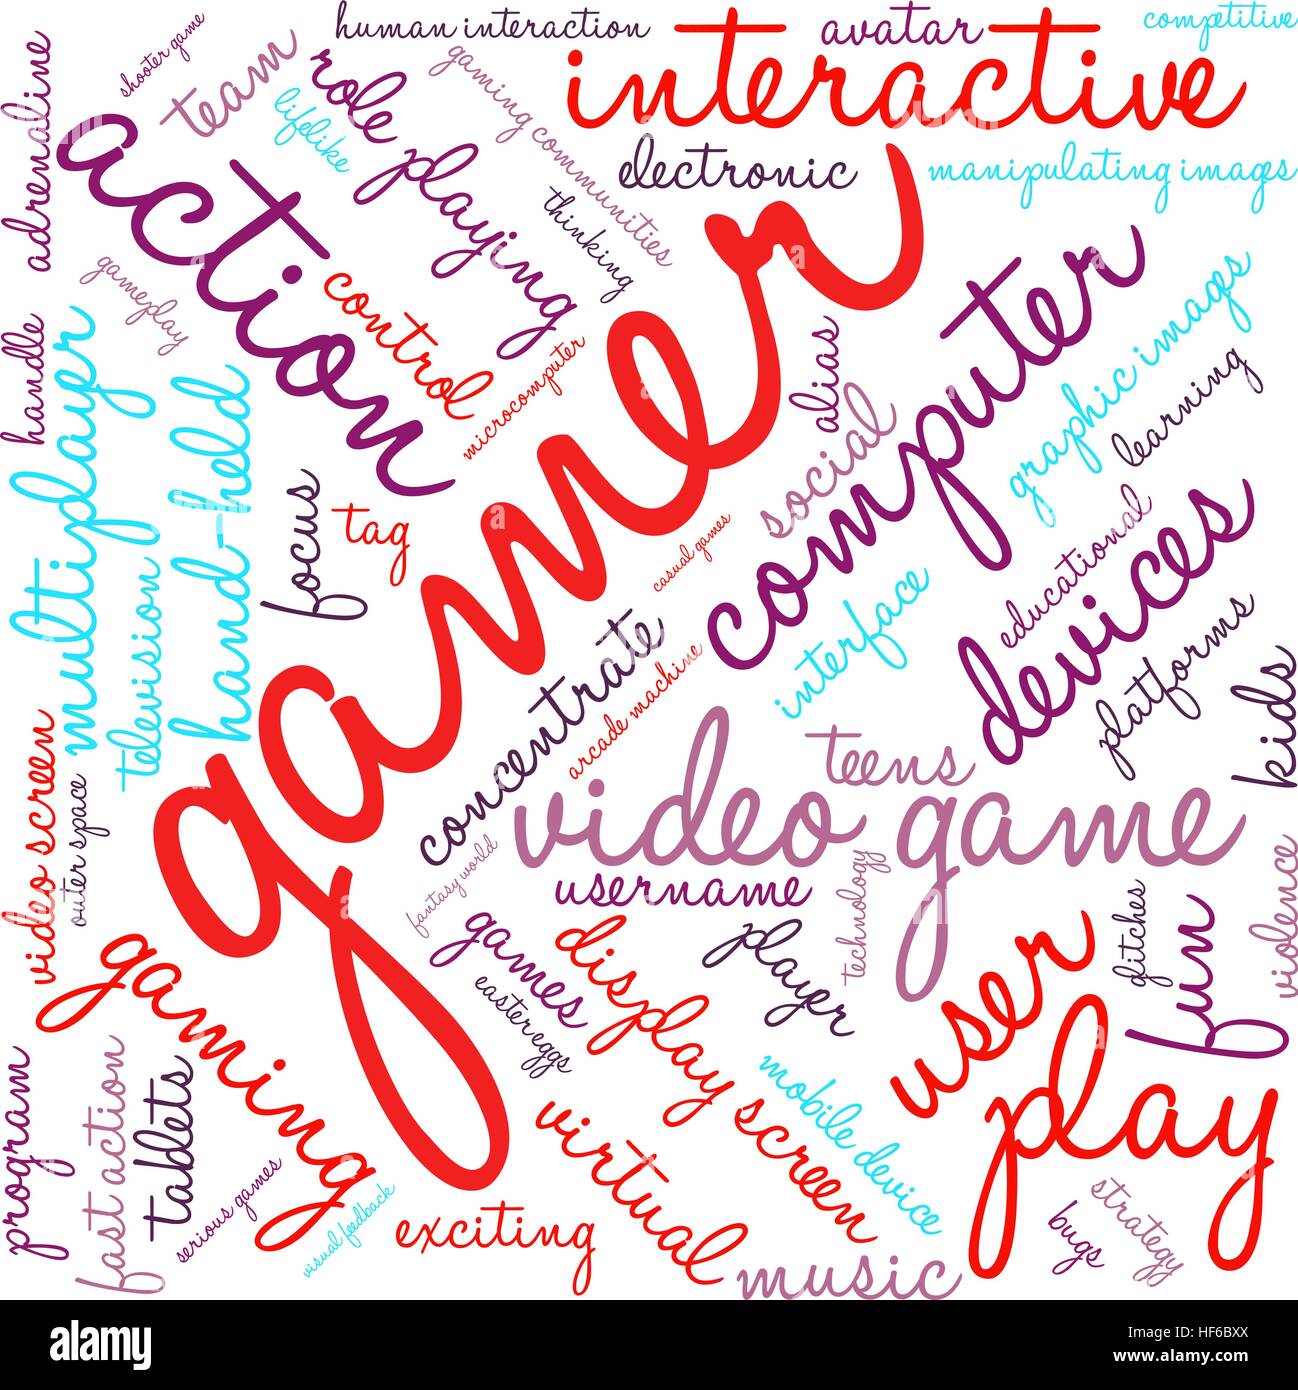 human interaction
avatar
competitive
interactive
shooter game
team
role playing
gaming communities
adrenaline
lifelike
action
electronic
manipulating images
thinking
gameplay
control
gamer
computer
graphic images
handle
multiplayer
hand-held
microcomputer
alias
social
learning
focus
tag
casual games
devices
educational
television
interface
concentrate
arcade machine
platforms
kids
video screen
outer space
teens
video game
fantasy world
username
technology
violence
glitches
fun
gaming
games
display screen
player
user
easter eggs
play
program
fast action
tablets
virtual
mobile device
serious games
visual feedback
exciting
music
strategy
bugs
alamy
Image ID: HF6BXX
www.alamy.com
alamy
a
a